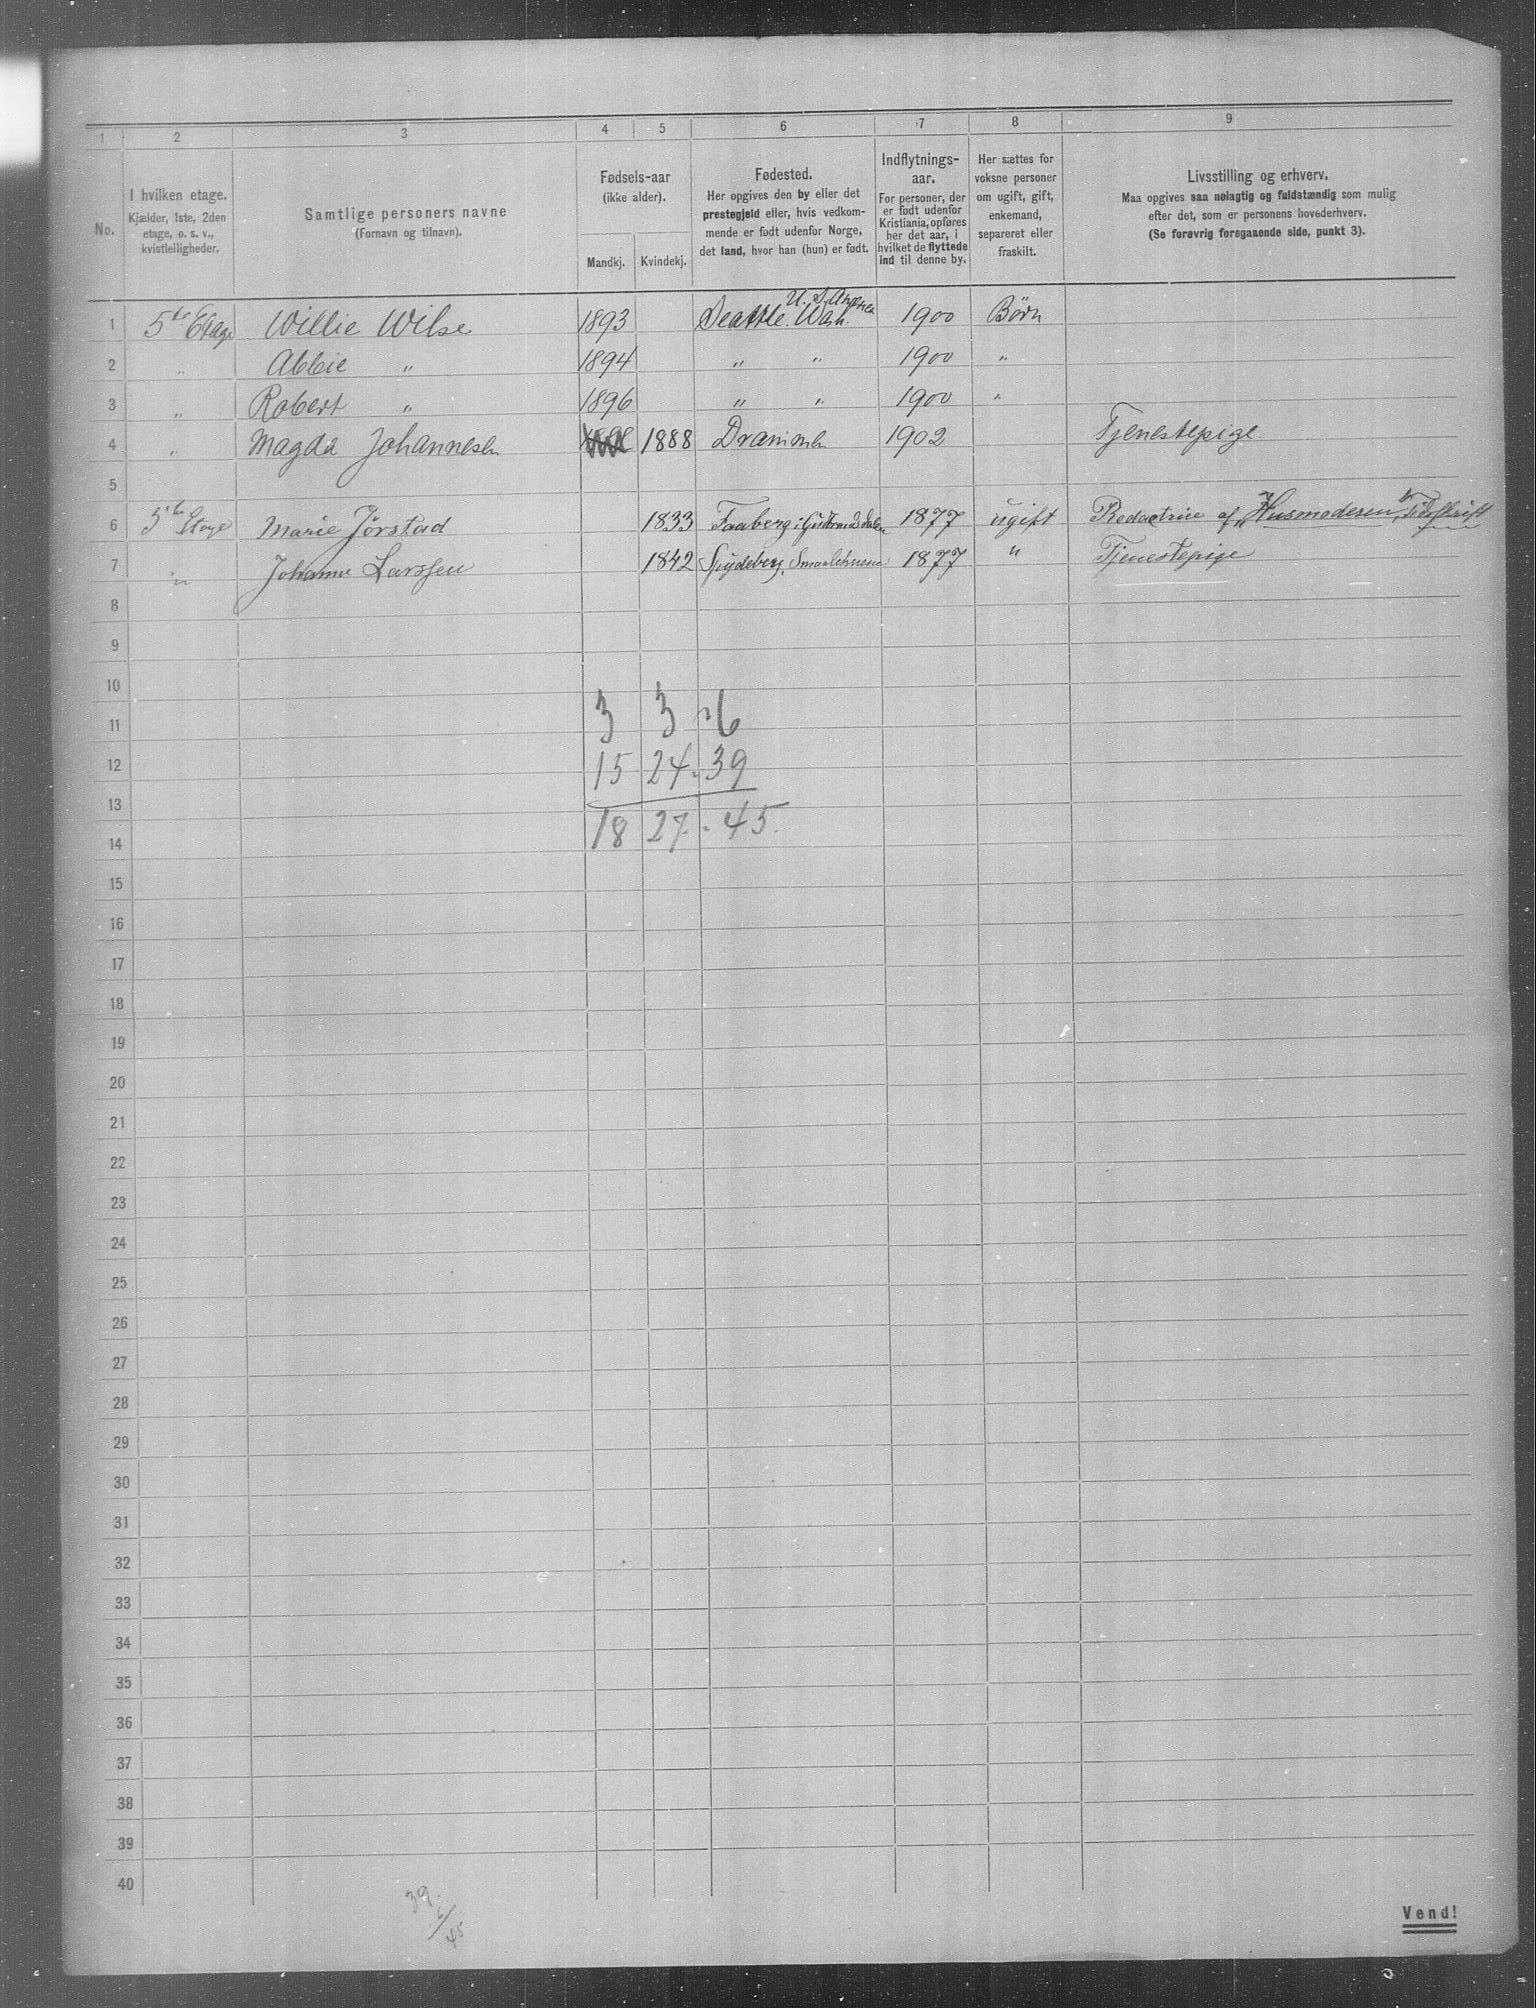 1 2 3 4 5 6 7 8 9
No.
I hvilken etage.
Kjælder, 1ste, 2den
etage, o. s. v.,
kvistleiligheder.
Samtlige personers navne
(Fornavn og tilnavn).
Fødsels-aar
(ikke alder).
Mandkj. Kvindekj.
Fødested.
Her opgives den by eller det
prestegjeld eller, hvis vedkom-
mende er født udenfor Norge,
det land, hvor han (hun) er født.
Indflytnings-
aar.
For personer, der
er født udenfor
Kristiania, opføres
her det aar, i
hvilket de flyttede
ind til denne by.
Her sættes for
voksne personer
om ugift, gift,
enkemand,
separeret eller
fraskilt.
Livsstilling og erhverv.
Maa opgives saa nøiagtig og fuldstændig som mulig
efter det, som er personens hovederhverv.
(Se forøvrig foregaaende side, punkt 3).
U. S. America
1 5te Etage Willie Wilse 1893 Seattle. Wash. 1900 Børn
2 " Abbie " 1894 " " 1900 "
3 " Robert " 1896 " " 1900 "
4 " Magda Johannesen 1888 Drammen 1902 Tjenestepige
5
6 5te Etage Marie Jörstad 1833 Faaberg i Gudbrandsdalen 1877 ugift Redactrice af "Husmoderen" Tidsskrift
7 " Johanne Larssen 1842 Spydeberg, Smaalehnene 1877 " Tjenestepige
8
9
10
11 3 3 = 6
12 15 24 - 39
13
14 18 27 - 45.
15
16
17
18
19
20
21
22
23
24
25
26
27
28
29
30
31
32
33
34
35
36
37
38
39
40
39
6
45
Vend!